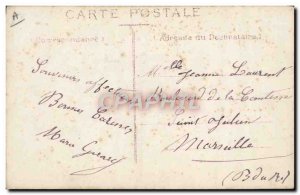 A
CARTE POSTALE
Correspondance
Adresse du Destinataire
Melle Jeanne Laurent
Boulevard de la Comtesse
Saint Julien
Marseille
(B du R)
Souvenirs affect
Bonnes